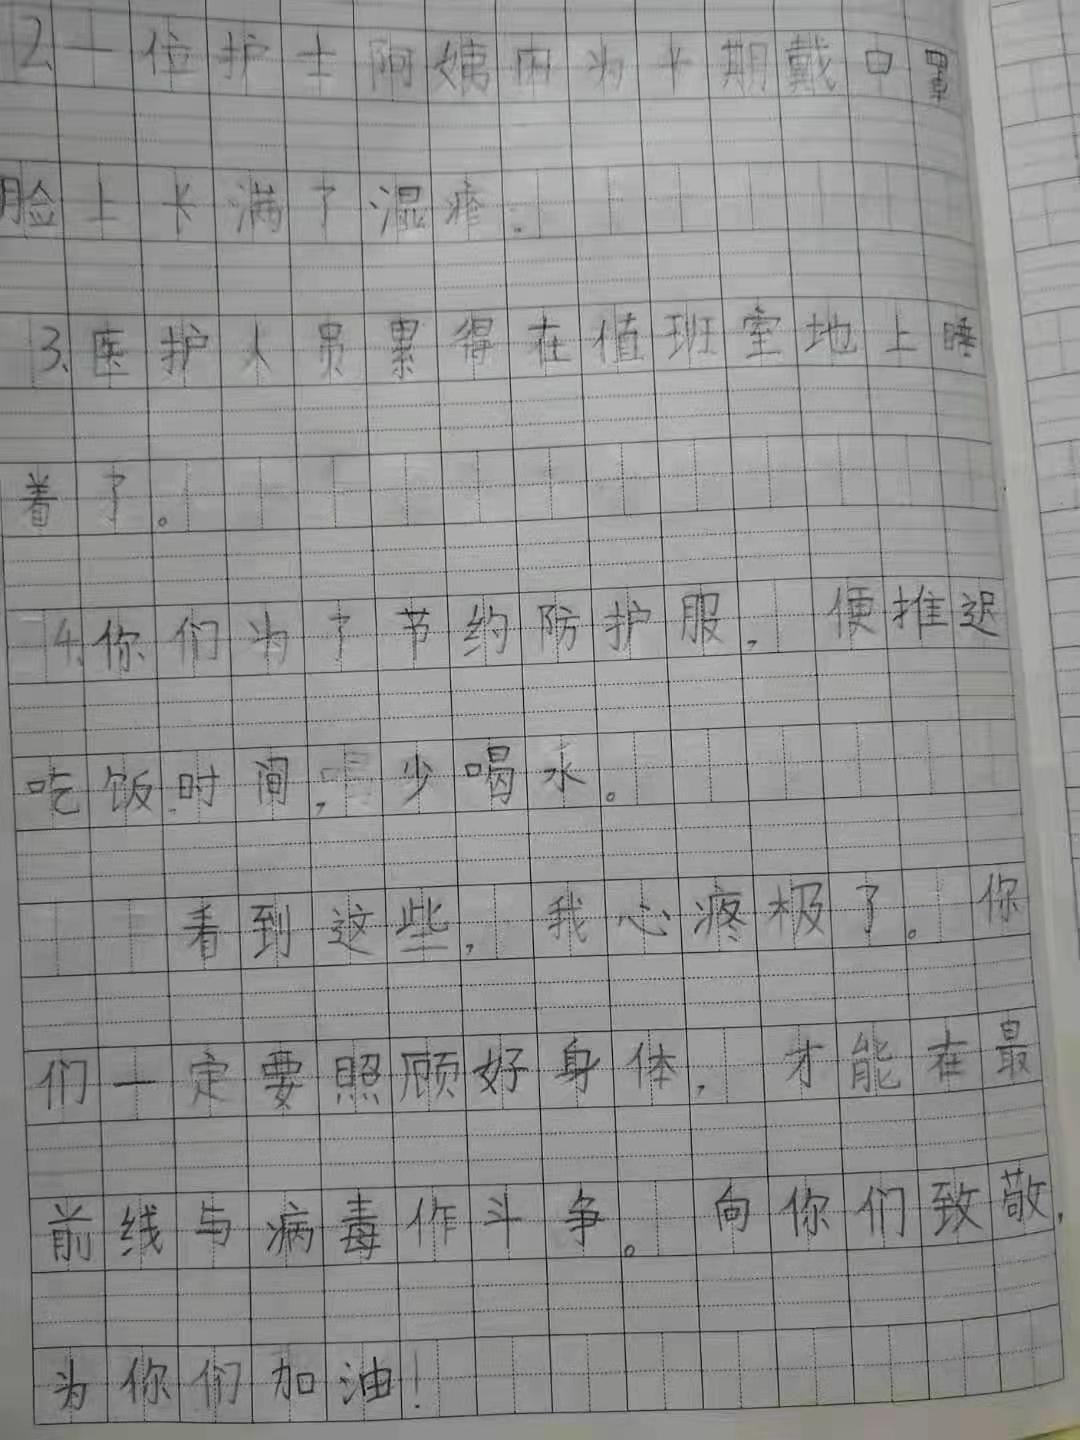 2、一位护士阿姨因为长期戴口罩
脸上长满了湿疹.
3、医护人员累得在值班室地上睡
着了。
4、你们为了节约防护服，便推迟
吃饭时间，少喝水。
看到这些，我心疼极了。你
们一定要照顾好身体，才能在最
前线与病毒作斗争。向你们致敬，
为你们加油！